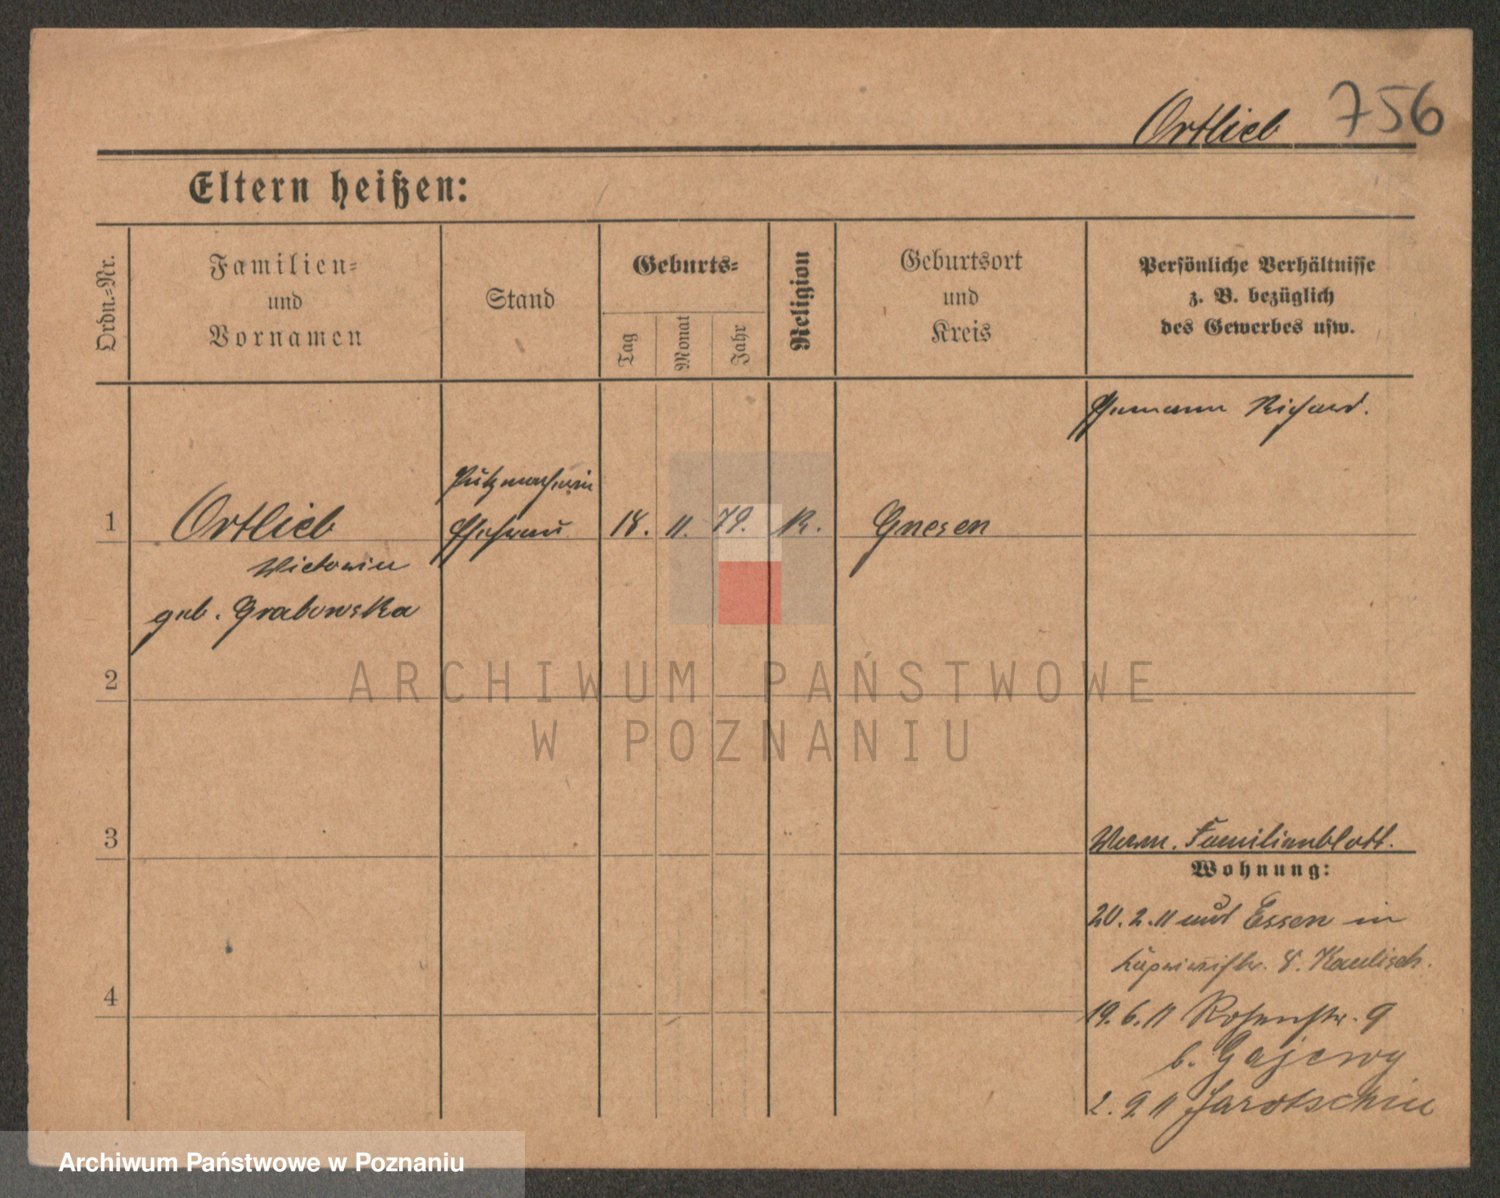 Ortlieb 756
Eltern heißen:
Ordn.-Nr.
Familien-
und
Vornamen
Stand
Geburts-
Tag
Monat
Jahr
Religion
Geburtsort
und
Kreis
Persönliche Verhältnisse
z. B. bezüglich
des Gewerbes usw.
Ehemann Richard.
Putzmacherin
1 Ortlieb Ehefrau 18. 11. 79. K. Gnesen
Victoria
geb. Grabowska
2
ARCHIWUM PAŃSTWOWE
W POZNANIU
3
Familienblatt.
Wohnung:
20. 2. 11 aus Essen in
8.
4
19. 6. 11 Rosenstr. 9
b. Gajewy
2. 9. 11 Jarotschin
Archiwum Państwowe w Poznaniu